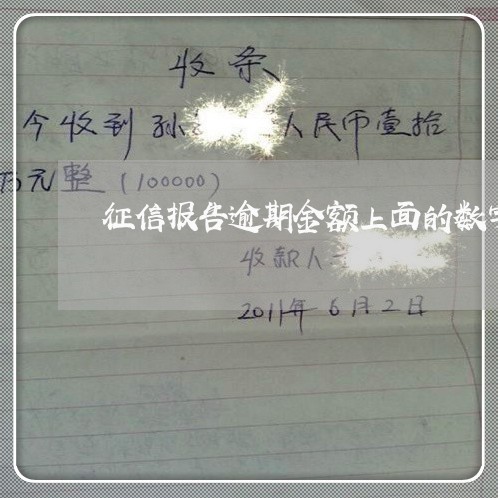 收条
今收到孙 人民币壹拾
万元整(100000)
征信报告逾期金额上面的数字
收款人
2011年6月2日